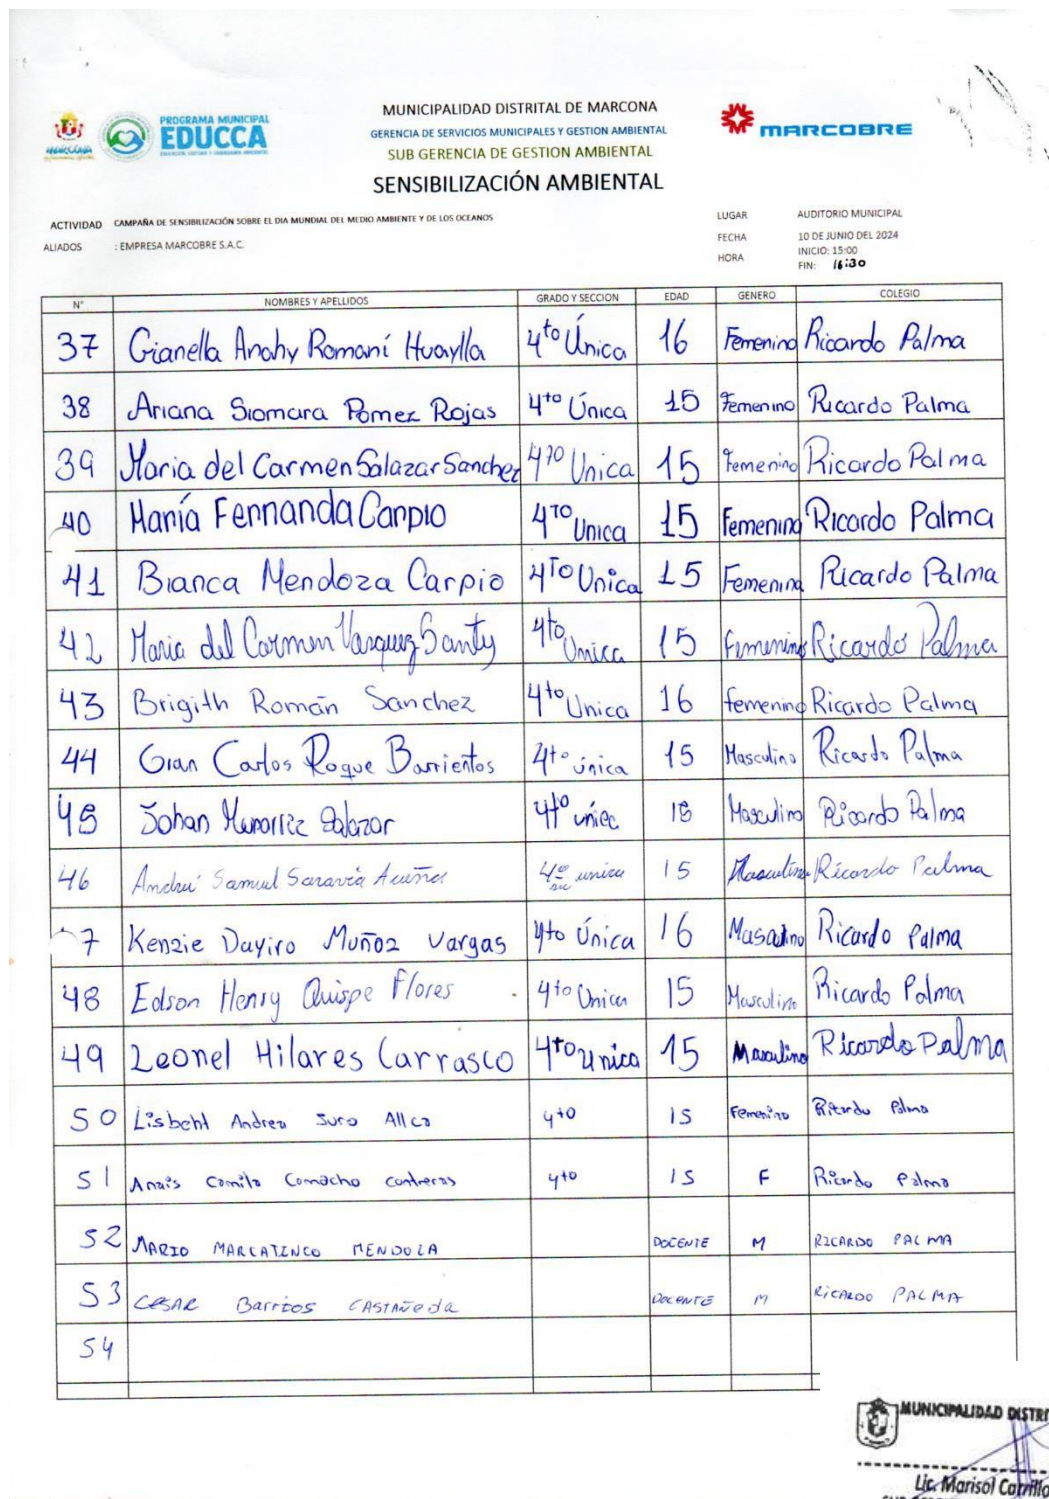 PROGRAMA MUNICIPAL
EDUCCA
MARCONA
MUNICIPALIDAD DISTRITAL DE MARCONA
GERENCIA DE SERVICIOS MUNICIPALES Y GESTION AMBIENTAL
SUB GERENCIA DE GESTION AMBIENTAL
SENSIBILIZACIÓN AMBIENTAL
MARCOBRE
ACTIVIDAD CAMPAÑA DE SENSIBILIZACIÓN SOBRE EL DIA MUNDIAL DEL MEDIO AMBIENTE Y DE LOS OCEANOS
ALIADOS : EMPRESA MARCOBRE S.A.C.
LUGAR AUDITORIO MUNICIPAL
FECHA 10 DE JUNIO DEL 2024
HORA INICIO: 15:00
FIN: 16:30
N° NOMBRES Y APELLIDOS GRADO Y SECCION EDAD GENERO COLEGIO
37 Gianella Anahy Romaní Huaylla 4to Única 16 Femenino Ricardo Palma
38 Ariana Siomara Pomez Rojas 4to Única 15 Femenino Ricardo Palma
39 Maria del Carmen Salazar Sanchez 4to Unica 15 Femenino Ricardo Palma
40 María Fernanda Carpio 4TO Unica 15 Femenina Ricardo Palma
41 Bianca Mendoza Carpio 4To Unica 15 Femenina Ricardo Palma
42 Maria del Carmen Vasquez Santy 4to Unica 15 Femenino Ricardo Palma
43 Brigith Román Sanchez 4to Unica 16 femenino Ricardo Palma
44 Gian Carlos Roque Barrientos 4to única 15 Masculino Ricardo Palma
45 Johan Munarriz Salazar 4to 15 Masculino Ricardo Palma
46 Samuel Saravia Acuña unica 15 Masculino Ricardo Palma
7 Kenzie Dayiro Muñoz Vargas 4to Única 16 Masculino Ricardo Palma
48 Edson Henry Quispe Flores 4to Unica 15 Masculino Ricardo Palma
49 Leonel Hilares Carrasco 4to Unica 15 Masculino Ricardo Palma
50 Lisbeht Andrea Suro Allca 4to 15 Femenino Ricardo Palma
51 Anais Camila Camacho contreras 4to 15 F Ricardo Palma
52 MARIO MARCATINCO MENDOZA DOCENTE M RICARDO PALMA
53 CESAR Barrios CASTAÑeda DOCENTE M RICARDO PALMA
54
MUNICIPALIDAD DISTRI
Lic. Marisol Carrillo